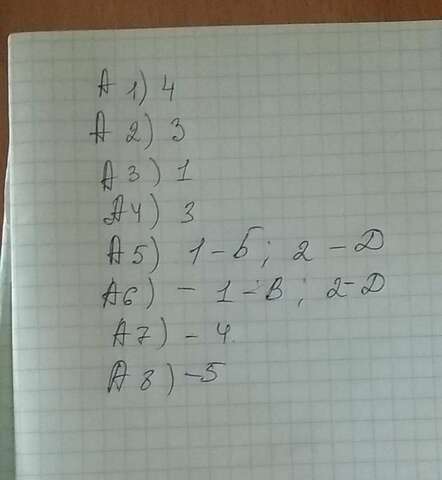 А 1) 4
А 2) 3
А 3) 1
А 4) 3
А 5) 1 - Б; 2 - Д
А 6) - 1 - В; 2 - Д
А 7) - 4.
А 8) - 5